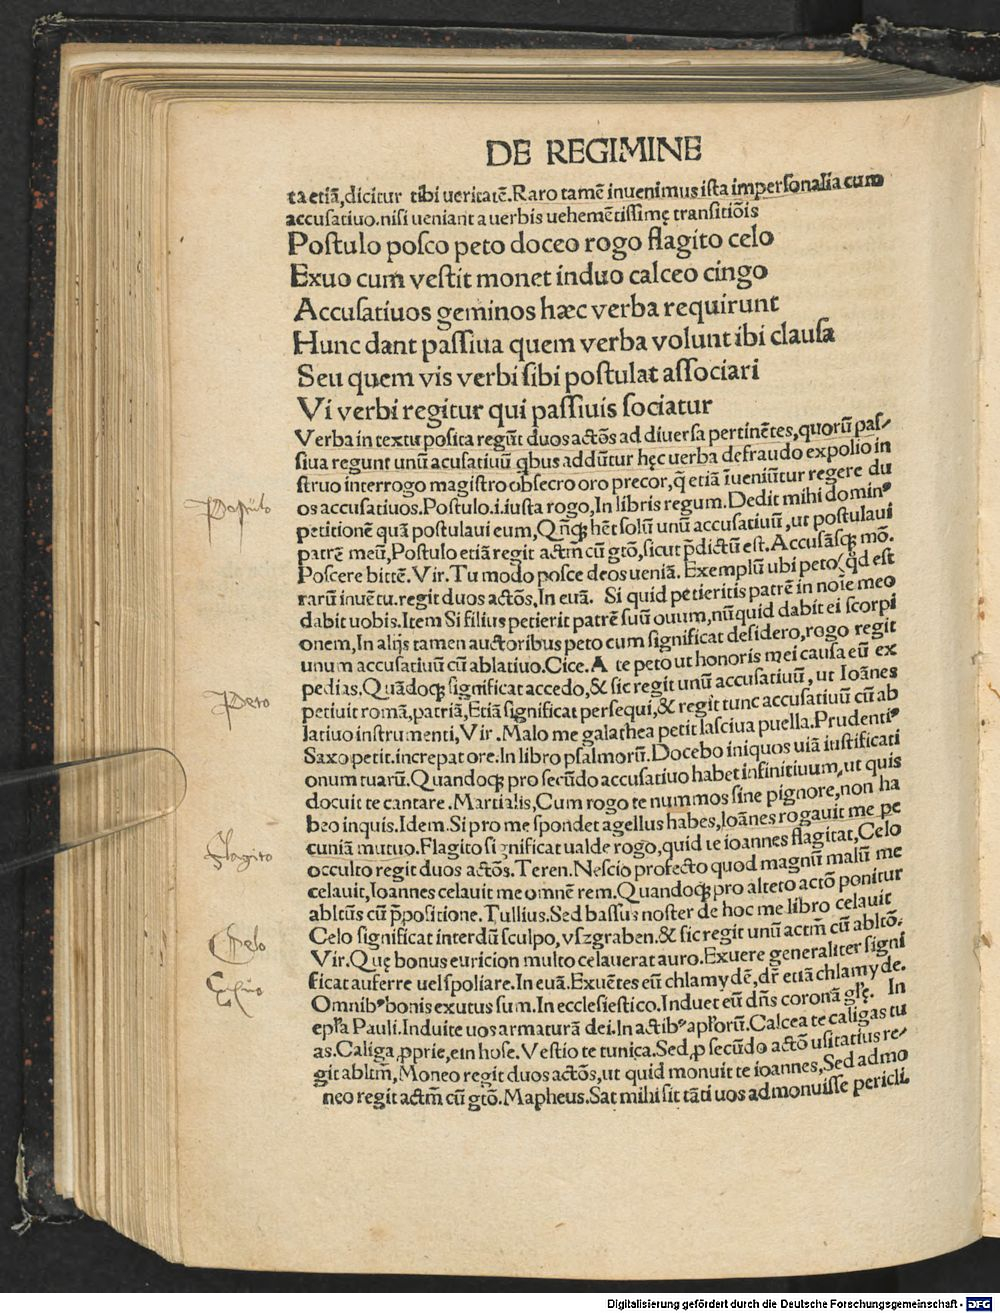 DE REGIMINE
ta etiã,dicitur tibi ueritatẽ.Raro tamẽ inuenimus ista impersonalia cum
accusatiuo.nisi ueniant a uerbis uehemẽtissimę transitiõis
Postulo posco peto doceo rogo flagito celo
Exuo cum vestit monet induo calceo cingo
Accusatiuos geminos hæc verba requirunt
Hunc dant passiua quem verba volunt ibi clausa
Seu quem vis verbi sibi postulat associari
Vi verbi regitur qui passiuis sociatur
Verba in textu posita regũt duos actõs ad diuersa pertinẽtes,quorũ pas⸗
siua regunt unũ acusatiuũ qbus addũtur hęc uerba defraudo expolio in
struo interrogo magistro obsecro oro precor,q̃ etiã ĩueniũtur regere du
os accusatiuos.Postulo.i.iusta rogo,In libris regum.Dedit mihi dominꝰ
petitionẽ quã postulaui eum,Qñqꝫ hẽt solũ unũ accusatiuũ,ut postulaui
patrẽ meũ,Postulo etiã regit actm̃ cũ gtõ,sicut p̃dictũ est.Accusãsqꝫ mõ.
Poscere bittẽ.Vir.Tu modo posce deos ueniã.Exemplũ ubi peto(qđ est
rarũ inuẽtu.regit duos actõs.In euã. Si quid petieritis patrẽ in noie meo
dabit uobis.Item Si filius petierit patrẽ suũ ouum,nũquid dabit ei scorpi
onem,In alijs tamen auctoribus peto cum significat desidero,rogo regit
unum accusatiuũ cũ ablatiuo.Cice.A te peto ut honoris mei causa eũ ex
pedias.Quãdoqꝫ significat accedo,& sic regit unũ accusatiuũ,ut Ioãnes
petiuit romã,patriã,Etiã significat persequi,& regit tunc accusatiuũ cũ ab
latiuo instrumenti,Vir.Malo me galathea petit lasciua puella.Prudentiꝰ
Saxo petit.increpat ore.In libro psalmorũ.Docebo iniquos uiã iustificati
onum tuarũ.Quandoqꝫ pro secũdo accusatiuo habet infinitiuum,ut quis
docuit te cantare.Martialis,Cum rogo te nummos sine pignore,non ha
beo inquis.Idem.Si pro me spondet agellus habes,Ioãnes rogauit me pe
cuniã mutuo.Flagito significat ualde rogo,quid te ioannes flagitat,Celo
occulto regit duos actõs.Teren.Nescio profecto quod magnũ malũ me
celauit,Ioannes celauit me omnẽ rem.Quandoqꝫ pro alteto actõ ponitur
abltũs cũ p̃positione.Tullius.Sed bassus noster de hoc me libro celauit
Celo significat interdũ sculpo,vszgraben.& sic regit unũ actm̃ cũ abltõ.
Vir.Quę bonus euricion multo celauerat auro.Exuere generaliter signi
ficat auferre uel spoliare.In euã.Exuẽtes eũ chlamydẽ,dr̃ etiã chlamyde.
Omnibꝰ bonis exutus sum.In ecclesiestico.Induet eũ dñs coronã glę. In
epľa Pauli.Induite uos armaturã dei.In actibꝰ apľorũ.Calcea te caligas tu
as.Caliga ꝓprie,ein hose.Vestio te tunica.Sed ꝓ secũdo actõ usitatius re⸗
git abltm̃,Moneo regit duos actõs,ut quid monuit te ioannes,Sed admo
neo regit actm̃ cũ gtõ.Mapheus.Sat mihi sit tãti uos admonuisse pericli.
Postulo
Peto
Flagito
Celo
Digitalisierung gefördert durch die Deutsche Forschungsgemeinschaft - DFG